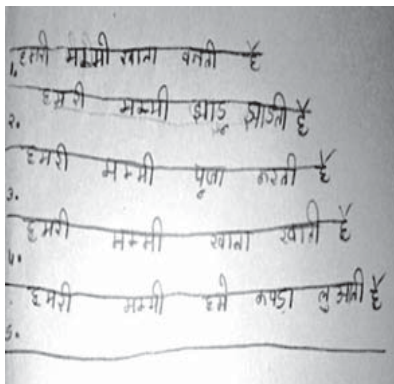 1. हमारी मम्मी खाना बनती है
2. हमरी मम्मी झाडू झाडती है
3. हमरी मम्मी पूजा करती है
4. हमरी मम्मी खाना खाती है
5. हमरी मम्मी हमे कपड़ा लु आती है